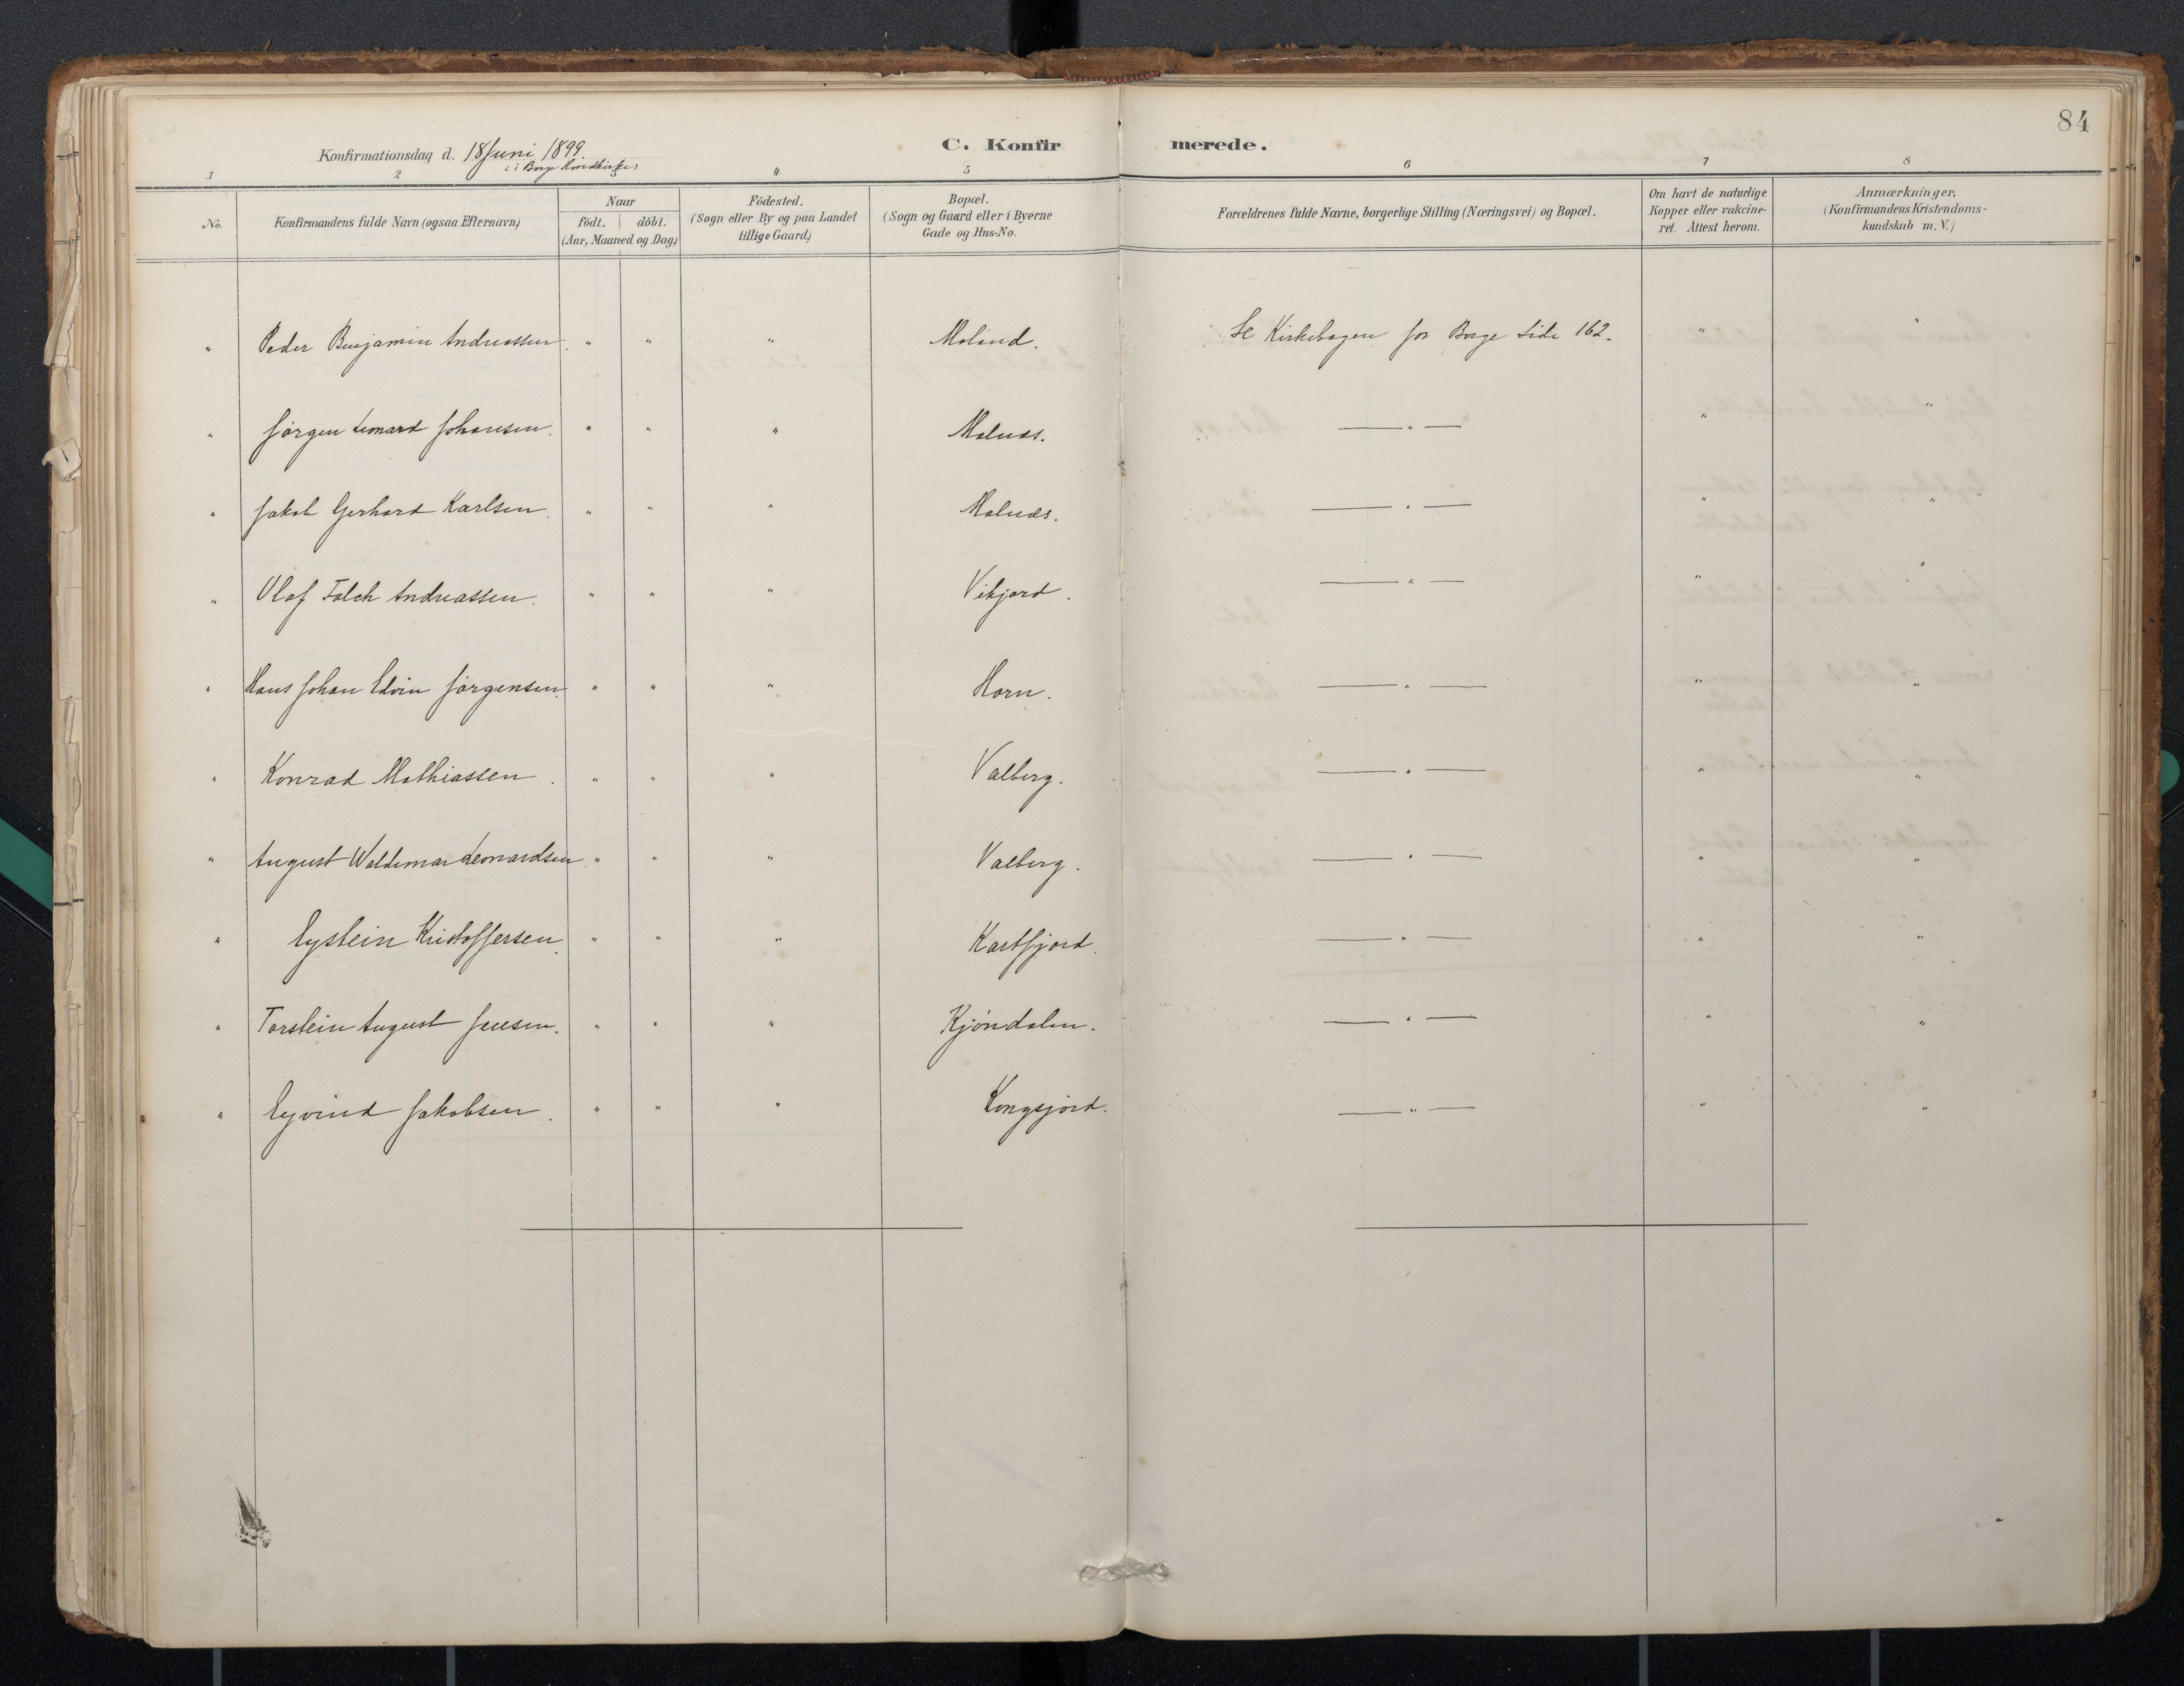 84
Konfirmationsdag d. 18 Juni 1899
C. Konfir merede.
i Borge Hovedkirke
1 2 3 4 5 6 7 8
No. Konfirmandens fulde Navn (ogsaa Efternavn) Naar födt. döbt. (Aar, Maaned og Dag) Födested. (Sogn eller By og paa Landet tillige Gaard) Bopæl. (Sogn og Gaard eller i Byerne Gade og Hus-No. Forældrenes fulde Navne, borgerlige Stilling (Næringsvei) og Bopæl. Om havt de naturlige Kopper eller vakcineret. Attest herom. Anmærkninger. (Konfirmandens Kristendomskundskab m. V.)
" Peder Benjamin Andreassen. " " " Moland. Se Kirkebogen for Borge Side 162. " "
" Jørgen Leonard Johansen. " " " Molnes. — " — " "
" Jakob Gerhard Karlsen. " " " Molnes. — " — " "
" Olaf Falch Andreassen. " " " Vikjord. — " — " "
" Hans Johan Edvin Jørgensen. " " " Horn. — " — " "
" Konrad Mathiassen. " " " Valberg. — " — " "
" August Waldemar Leonardsen. " " " Valberg. — " — " "
" Eystein Kristoffersen. " " " Kartfjord. — " — " "
" Torstein August Jensen. " " " Kjöndalen. — " — " "
" Eyvind Jakobsen. " " " Kongsjord. — " — " "